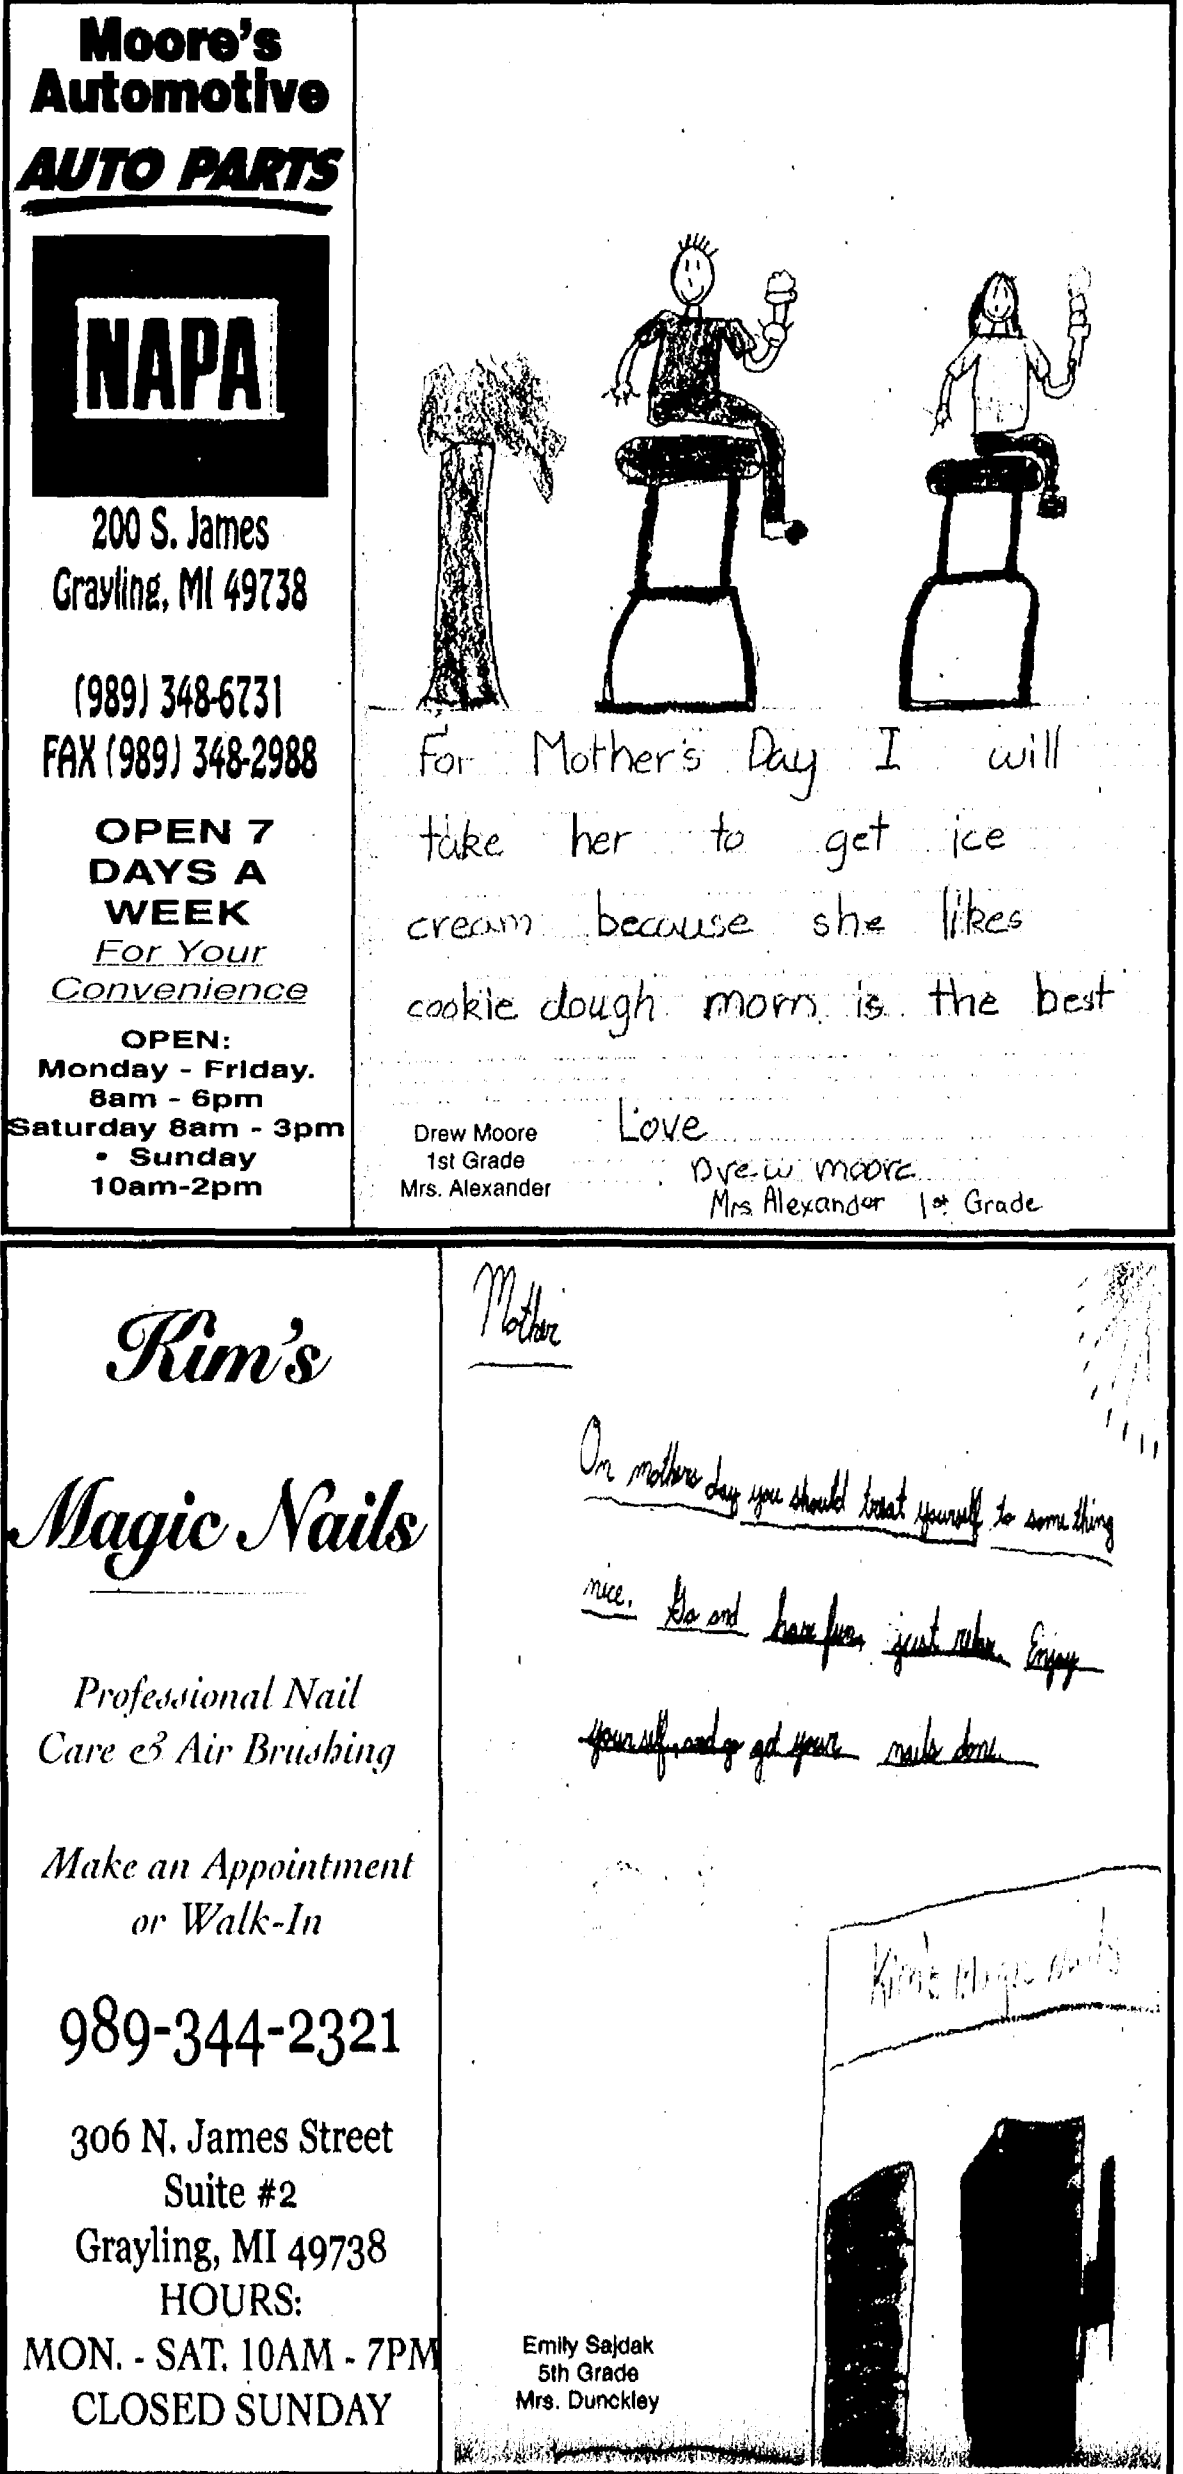 Moore's
Automotive
AUTO PARTS
NAPA
200 S. James
Grayling, MI 49738
(989) 348-6731
FAX (989) 348-2988
OPEN 7
DAYS A
WEEK
For Your
Convenience
OPEN:
Monday - Friday.
8am - 6pm
Saturday 8am - 3pm
• Sunday
10am-2pm
For Mother's Day I will
take her to get ice
cream because she likes
cookie dough mom is the best
Love
Drew moore
Mrs Alexander 1st Grade
Drew Moore
1st Grade
Mrs. Alexander
Kim's
Magic Nails
Professional Nail
Care & Air Brushing
Make an Appointment
or Walk-In
989-344-2321
306 N. James Street
Suite #2
Grayling, MI 49738
HOURS:
MON. - SAT. 10AM - 7PM
CLOSED SUNDAY
Mother
On mothers day you should treat yourself to something
nice. Go and have fun, just relax. Enjoy
yourself, and go get your nails done.
Kim's Magic Nails
Emily Sajdak
5th Grade
Mrs. Dunckley